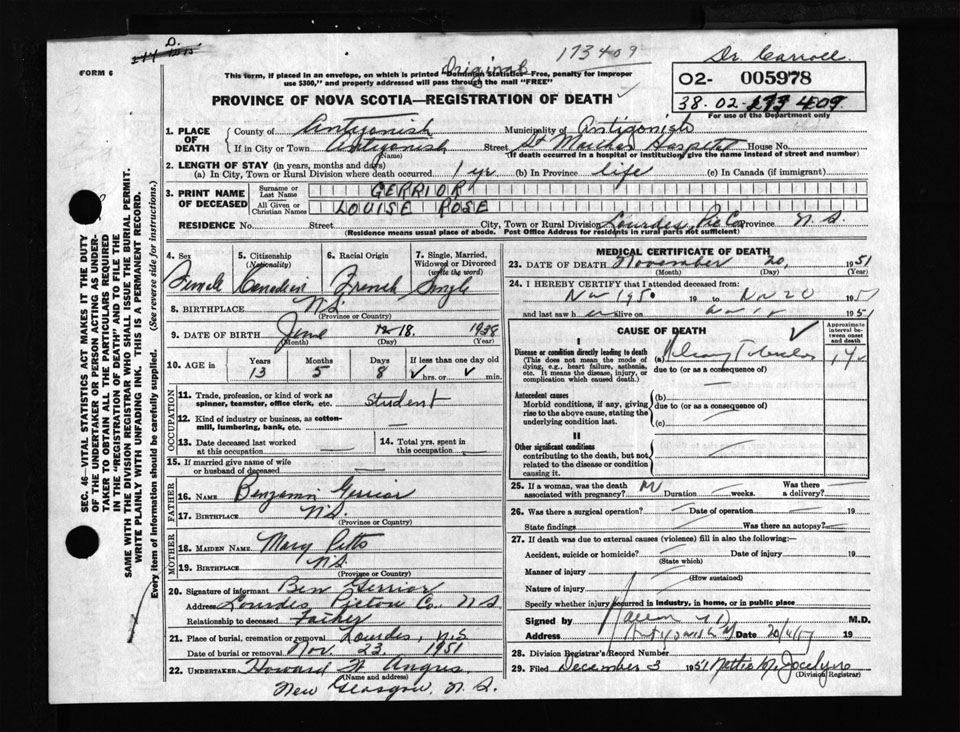 D.
173409
FORM 6
Original
Dr. Carroll
This form, if placed in an envelope, on which is printed "Dominion Statistics—Free, penalty for improper
use $300," and properly addressed will pass through the mail "FREE"
O2- 005978
38.02-173409
For use of the Department only
PROVINCE OF NOVA SCOTIA—REGISTRATION OF DEATH ✓
1. PLACE OF DEATH
County of Antigonish Municipality of Antigonish
If in City or Town Antigonish Street St Martha's Hospital House No.
(Name) (If death occurred in a hospital or institution, give the name instead of street and number)
2. LENGTH OF STAY (in years, months and days)
(a) In City, Town or Rural Division where death occurred 1 yr (b) In Province life (c) In Canada (if immigrant)
3. PRINT NAME OF DECEASED
Surname or Last Name GERRIOR
All Given or Christian Names LOUISE ROSE
RESIDENCE No. Street City, Town or Rural Division Lourdes, Pic Co Province N.S.
(Residence means usual place of abode. Post Office Address for residents in rural parts not sufficient)
4. Sex Female
5. Citizenship (Nationality) Canadian
6. Racial Origin French
7. Single, Married, Widowed or Divorced (write the word) Single
8. BIRTHPLACE N.S.
(Province or Country)
9. DATE OF BIRTH June 18, 1938
(Month) (Day) (Year)
10. AGE in Years 13 Months 5 Days 8 If less than one day old ✓ hrs. or ✓ min.
OCCUPATION
11. Trade, profession, or kind of work as spinner, teamster, office clerk, etc. Student
12. Kind of industry or business, as cotton-mill, lumbering, bank, etc. —
13. Date deceased last worked at this occupation —
14. Total yrs. spent in this occupation —
15. If married give name of wife or husband of deceased —
FATHER
16. NAME Benjamin Gerrior
17. BIRTHPLACE N.S.
(Province or Country)
MOTHER
18. MAIDEN NAME Mary Pitts
19. BIRTHPLACE N.S.
(Province or Country)
20. Signature of informant Ben Gerrior
Address Lourdes Pictou Co. N.S.
Relationship to deceased Father
21. Place of burial, cremation or removal Lourdes, N.S.
Date of burial or removal Nov. 23, 1951
22. UNDERTAKER Howard W. Angus
(Name and address)
New Glasgow, N.S.
MEDICAL CERTIFICATE OF DEATH
23. DATE OF DEATH November 20, 1951
(Month) (Day) (Year)
24. I HEREBY CERTIFY that I attended deceased from:
Nov 1950 19 to Nov 20 1951
and last saw h alive on 1951
CAUSE OF DEATH ✓
Approximate interval between onset and death
I
Disease or condition directly leading to death (a)
(This does not mean the mode of dying, e.g., heart failure, asthenia, etc. It means the disease, injury, or complication which caused death.)
due to (or as a consequence of)
Antecedent causes
Morbid conditions, if any, giving rise to the above cause, stating the underlying condition last.
(b)
due to (or as a consequence of)
(c)
II
Other significant conditions
contributing to the death, but not related to the disease or condition causing it.
25. If a woman, was the death associated with pregnancy? Duration weeks. Was there a delivery?
26. Was there a surgical operation? Date of operation 19
State findings Was there an autopsy?
27. If death was due to external causes (violence) fill in also the following:—
Accident, suicide or homicide? Date of injury 19
(State which)
Manner of injury
(How sustained)
Nature of injury
Specify whether injury occurred in industry, in home, or in public place
Signed by M.D.
Address Date 19
28. Division Registrar's Record Number
29. Filed December 3 1951 Nettie M. Jocelyn
(Division Registrar)
SEC. 46—VITAL STATISTICS ACT MAKES IT THE DUTY
OF THE UNDERTAKER OR PERSON ACTING AS UNDER-
TAKER TO OBTAIN ALL THE PARTICULARS REQUIRED
IN THE "REGISTRATION OF DEATH" AND TO FILE THE
SAME WITH THE DIVISION REGISTRAR WHO SHALL ISSUE THE BURIAL PERMIT.
WRITE PLAINLY WITH UNFADING INK. THIS IS A PERMANENT RECORD.
Every item of information should be carefully supplied. (See reverse side for instructions.)